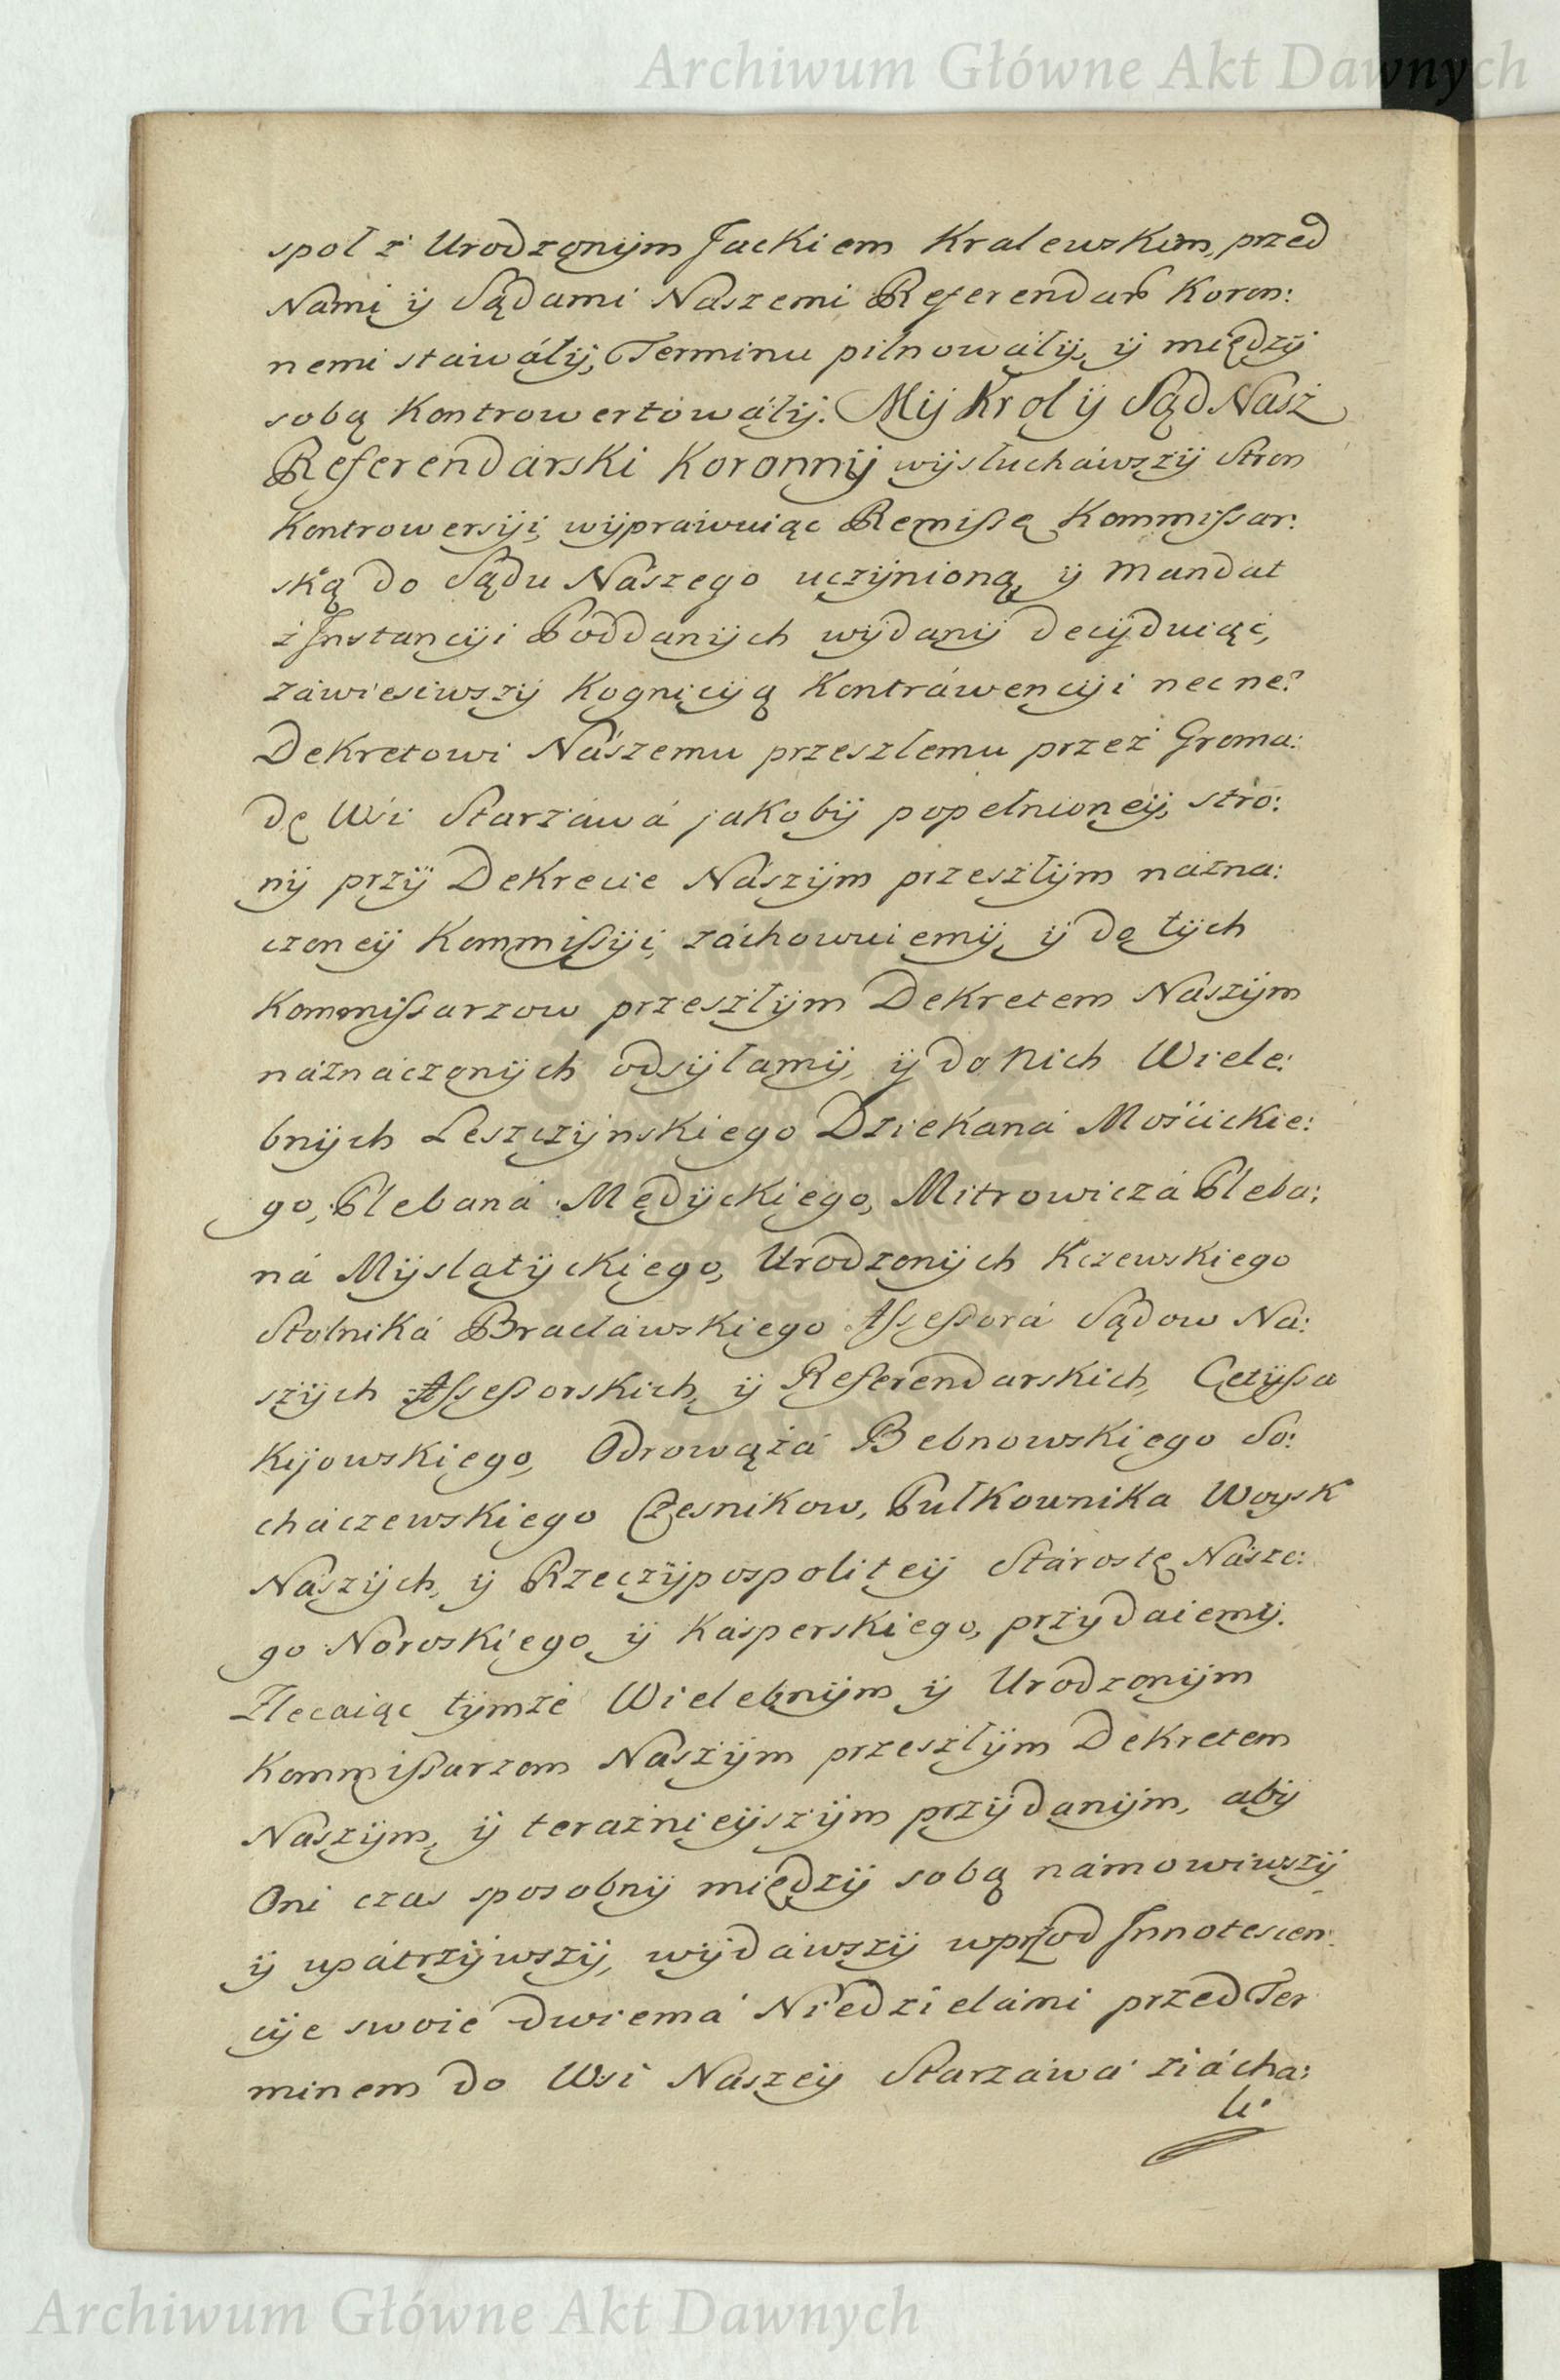 Archiwum Główne Akt Dawnych
społ z Urodzonym Jackiem Kralewskim, przed
Nami y Sądami Naszemi Referendar Koron:
nemi stawáły, Terminu pilnowáły, y między
sobą Kontrowertowáły. My Krol y Sąd Nasz
Referendárski Koronny wysłucháwszy Stron
Kontrowersyi, wyprawuiąc Remissę Kommissar:
ską do Sądu Nászego uczynioną, y Mandat
z Instancyi Poddanych wydany decyduiąc,
záwiesiwszy Kognicyą Kontráwencyi nec ne?
Dekretowi Nászemu przeszłemu przez Groma:
dę Wsi Starzáwá jakoby popełnioney, stro:
ny przy Dekrecie Nászym przeszłym názna:
czoney Kommissyi, záchowuiemy, y do tych
Kommissarzow przeszłym Dekretem Naszym
náznáczonych odsyłamy, y do Nich Wiele:
bnych Leszczynskiego Dziekaná Mościckie:
go, Plebaná Medyckiego, Mitrowiczá Pleba:
ná Myslatyckiego, Urodzonych Kczewskiego
Stolniká Bracławskiego Assessorá Sądow Ná:
szych Assessorskich, y Referendarskich, Cetysa
Kijowskiego, Odrowążá Bebnowskiego So:
cháczewskiego Cześnikow, Pułkownika Woysk
Naszych, y Rzeczypospolitey Stárostę Násze:
go Noroskiego y Kásperskiego, przydaiemy.
Zlecaiąc tymże Wielebnym y Urodzonym
Kommissarzom Naszym przeszłym Dekretem
Naszym, y teraznieyszym przydanym, aby
Oni czas sposobny między sobą námowiwszy
y upátrzywszy, wydáwszy wprzod Innotescen
cye swoie dwiemá Niedzielámi przed Ter
minem do Wsi Nászey Starzáwá ziácha:
li.
Archiwum Główne Akt Dawnych